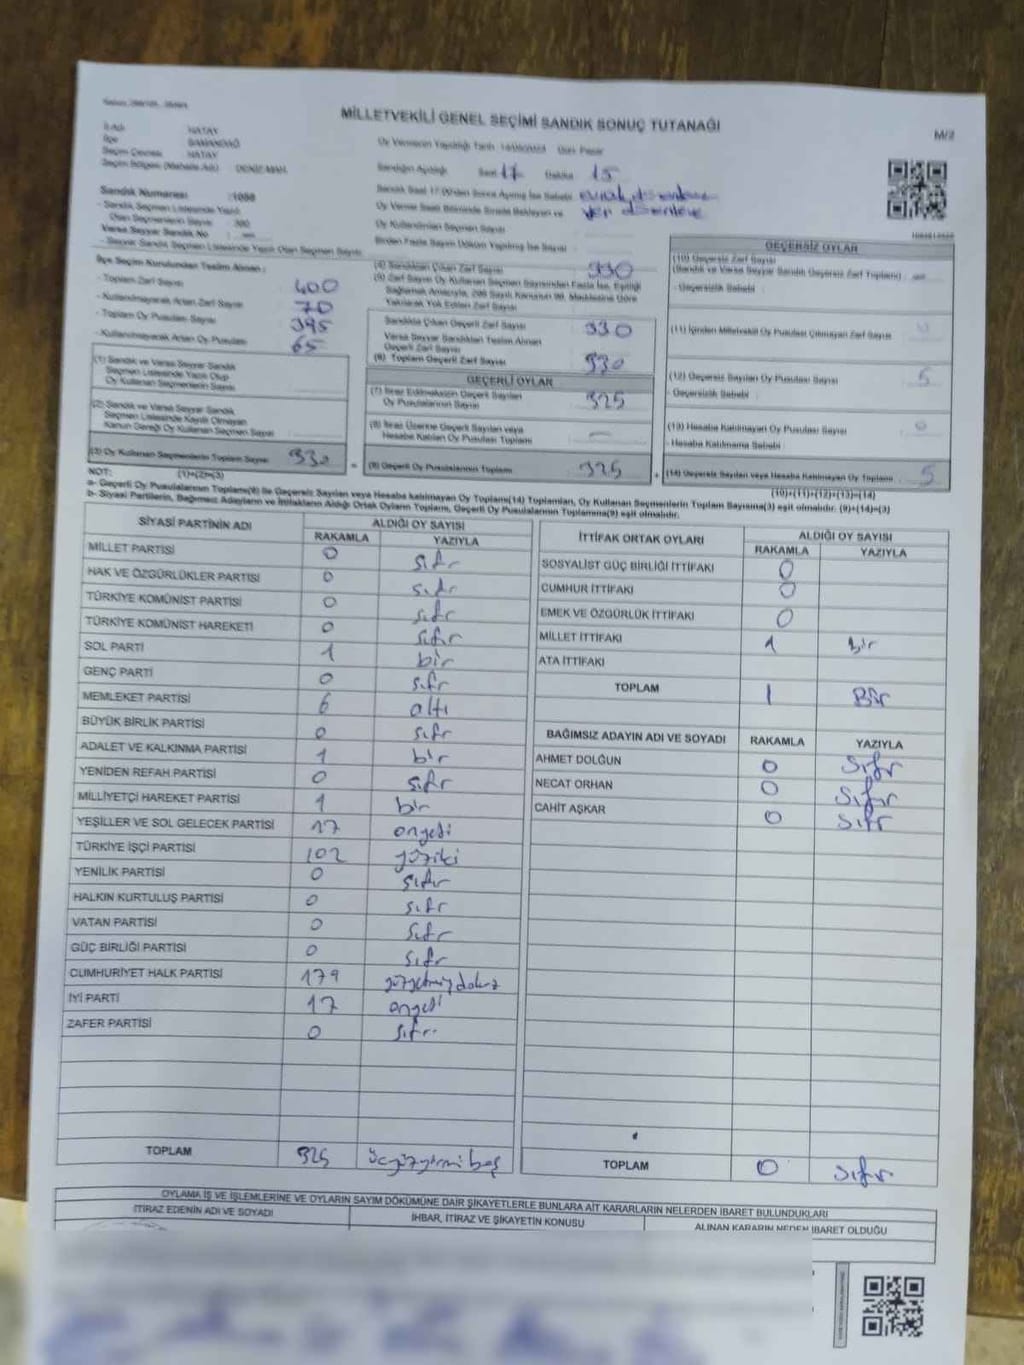 MİLLETVEKİLİ GENEL SEÇİMİ SANDIK SONUÇ TUTANAĞI
M/2
İl Adı HATAY
İlçe SAMANDAĞ
Seçim Çevresi HATAY
Seçim Bölgesi (Mahalle Adı) DENİZ MAH.
Oy Vermenin Yapıldığı Tarih Gün: Pazar
Sandığın Açıldığı Saat 17 Dakika 15
Sandık Saat 17:00'den Sonra Açılmış İse Sebebi
Sandık Numarası :1088
- Sandık Seçmen Listesinde Yazılı
Olan Seçmenlerin Sayısı
Varsa Seyyar Sandık No
- Seyyar Sandık Seçmen Listesinde Yazılı Olan Seçmen Sayısı
Oy Kullandırılan Seçmen Sayısı
Birden Fazla Sayım Döküm Yapılmış İse Sayısı
İlçe Seçim Kurulundan Teslim Alınan :
- Toplam Zarf Sayısı 400
- Kullanılmayarak Artan Zarf Sayısı 70
- Toplam Oy Pusulası Sayısı 395
- Kullanılmayarak Artan Oy Pusulası 65
(1) Sandık ve Varsa Seyyar Sandık
Seçmen Listesinde Yazılı Olup
Oy Kullanan Seçmenlerin Sayısı
(2) Sandık ve Varsa Seyyar Sandık
Seçmen Listesinde Kayıtlı Olmayan
Kanun Gereği Oy Kullanan Seçmen Sayısı
(3) Oy Kullanan Seçmenlerin Toplam Sayısı 330
(4) Sandıktan Çıkan Zarf Sayısı 330
(5) Zarf Sayısı Oy Kullanan Seçmen Sayısından Fazla İse, Eşitliği
Sağlamak Amacıyla, 298 Sayılı Kanunun 98. Maddesine Göre
Yakılarak Yok Edilen Zarf Sayısı
Sandıkta Çıkan Geçerli Zarf Sayısı 330
Varsa Seyyar Sandıktan Teslim Alınan
Geçerli Zarf Sayısı
(6) Toplam Geçerli Zarf Sayısı 330
GEÇERLİ OYLAR
(7) İtiraz Edilmeksizin Geçerli Sayılan
Oy Pusulalarının Sayısı 325
(8) İtiraz Üzerine Geçerli Sayılan veya
Hesaba Katılan Oy Pusulası Toplamı -
(9) Geçerli Oy Pusulalarının Toplamı 325
GEÇERSİZ OYLAR
(10) Geçersiz Zarf Sayısı
(Sandık ve Varsa Seyyar Sandık Geçersiz Zarf Toplamı) :
- Geçersizlik Sebebi :
(11) İçinden Milletvekili Oy Pusulası Çıkmayan Zarf Sayısı
(12) Geçersiz Sayılan Oy Pusulası Sayısı 5
- Geçersizlik Sebebi :
(13) Hesaba Katılmayan Oy Pusulası Sayısı 0
- Hesaba Katılmama Sebebi :
(14) Geçersiz Sayılan veya Hesaba Katılmayan Oy Toplamı 5
NOT: (1)+(2)=(3) (10)+(11)+(12)+(13)=(14)
a- Geçerli Oy Pusulalarının Toplamı(9) ile Geçersiz Sayılan veya Hesaba katılmayan Oy Toplamı(14) Toplamları, Oy Kullanan Seçmenlerin Toplam Sayısına(3) eşit olmalıdır. (9)+(14)=(3)
b- Siyasi Partilerin, Bağımsız Adayların ve İttifakların Aldığı Ortak Oyların Toplamı, Geçerli Oy Pusulalarının Toplamına(9) eşit olmalıdır.
SİYASİ PARTİNİN ADI ALDIĞI OY SAYISI
RAKAMLA YAZIYLA
MİLLET PARTİSİ 0 sıfır
HAK VE ÖZGÜRLÜKLER PARTİSİ 0 sıfır
TÜRKİYE KOMÜNİST PARTİSİ 0 sıfır
TÜRKİYE KOMÜNİST HAREKETİ 0 sıfır
SOL PARTİ 1 bir
GENÇ PARTİ 0 sıfır
MEMLEKET PARTİSİ 6 altı
BÜYÜK BİRLİK PARTİSİ 0 sıfır
ADALET VE KALKINMA PARTİSİ 1 bir
YENİDEN REFAH PARTİSİ 0 sıfır
MİLLİYETÇİ HAREKET PARTİSİ 1 bir
YEŞİLLER VE SOL GELECEK PARTİSİ 17 onyedi
TÜRKİYE İŞÇİ PARTİSİ 102 yüziki
YENİLİK PARTİSİ 0 sıfır
HALKIN KURTULUŞ PARTİSİ 0 sıfır
VATAN PARTİSİ 0 sıfır
GÜÇ BİRLİĞİ PARTİSİ 0 sıfır
CUMHURİYET HALK PARTİSİ 179 yüzyetmişdokuz
İYİ PARTİ 17 onyedi
ZAFER PARTİSİ 0 sıfır
TOPLAM 325 üçyüzyirmibeş
İTTİFAK ORTAK OYLARI ALDIĞI OY SAYISI
RAKAMLA YAZIYLA
SOSYALİST GÜÇ BİRLİĞİ İTTİFAKI 0
CUMHUR İTTİFAKI 0
EMEK VE ÖZGÜRLÜK İTTİFAKI 0
MİLLET İTTİFAKI 1 bir
ATA İTTİFAKI
TOPLAM 1 Bir
BAĞIMSIZ ADAYIN ADI VE SOYADI RAKAMLA YAZIYLA
AHMET DOLĞUN 0 Sıfır
NECAT ORHAN 0 Sıfır
CAHİT AŞKAR 0 Sıfır
TOPLAM 0 Sıfır
OYLAMA İŞ VE İŞLEMLERİNE VE OYLARIN SAYIM DÖKÜMÜNE DAİR ŞİKAYETLERLE BUNLARA AİT KARARLARIN NELERDEN İBARET BULUNDUKLARI
İTİRAZ EDENİN ADI VE SOYADI İHBAR, İTİRAZ VE ŞİKAYETİN KONUSU ALINAN KARARIN NEDEN İBARET OLDUĞU